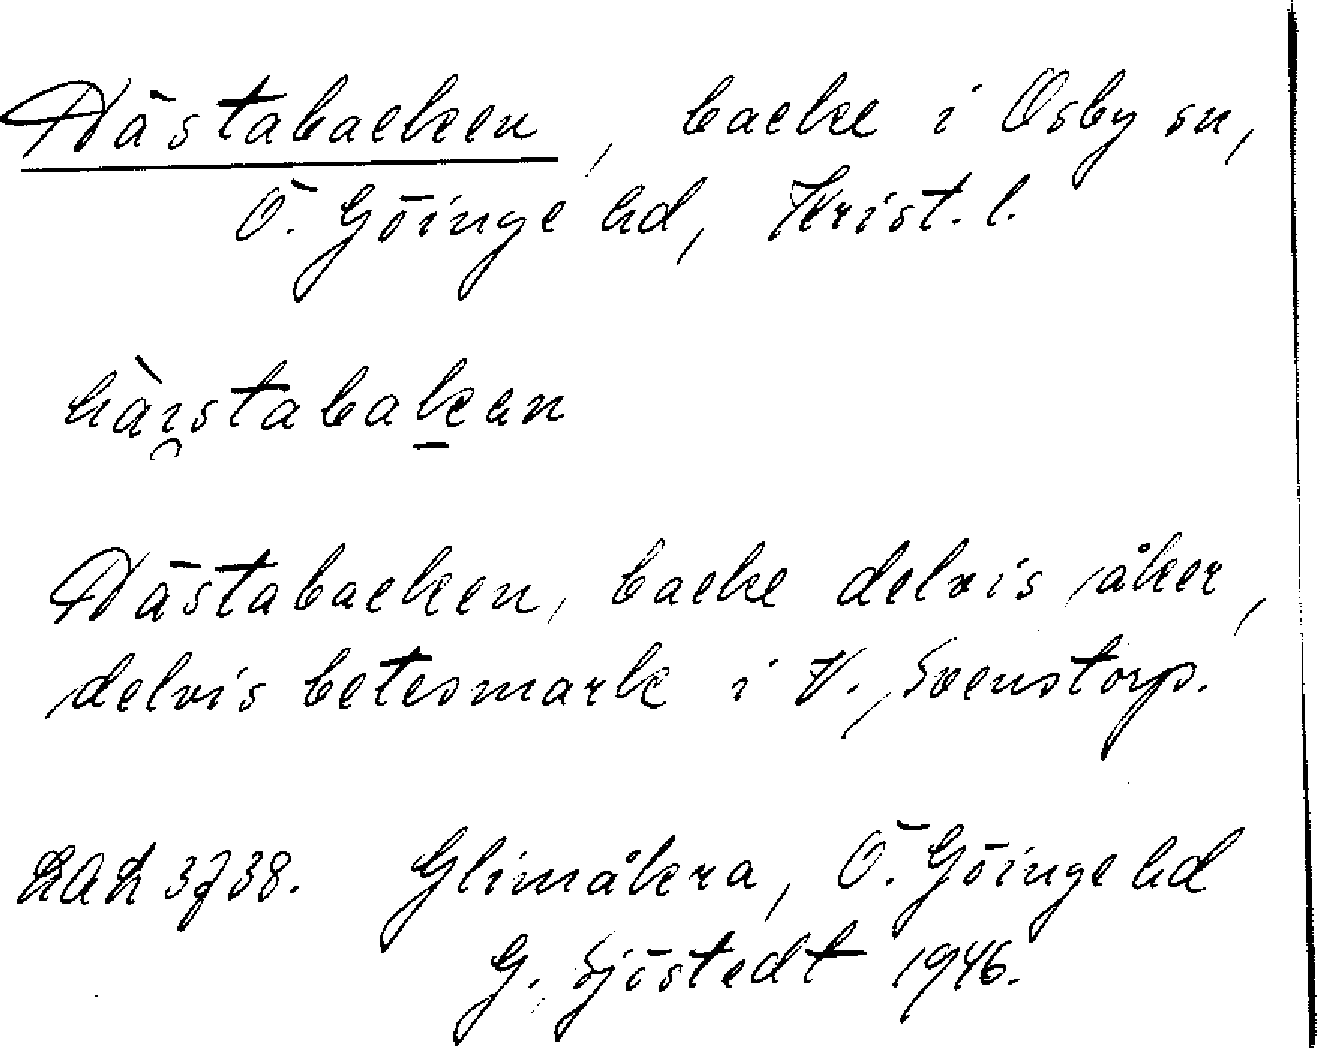 Hästabacken, backe i Osby sn,
Ö. Göinge hd, Krist. l.
hàistabaken
Hästabacken, backe delvis åker,
delvis betesmark i V. Svenstorp.
LAL 3738. Glimåkra, Ö. Göinge hd
G. Sjöstedt 1946.